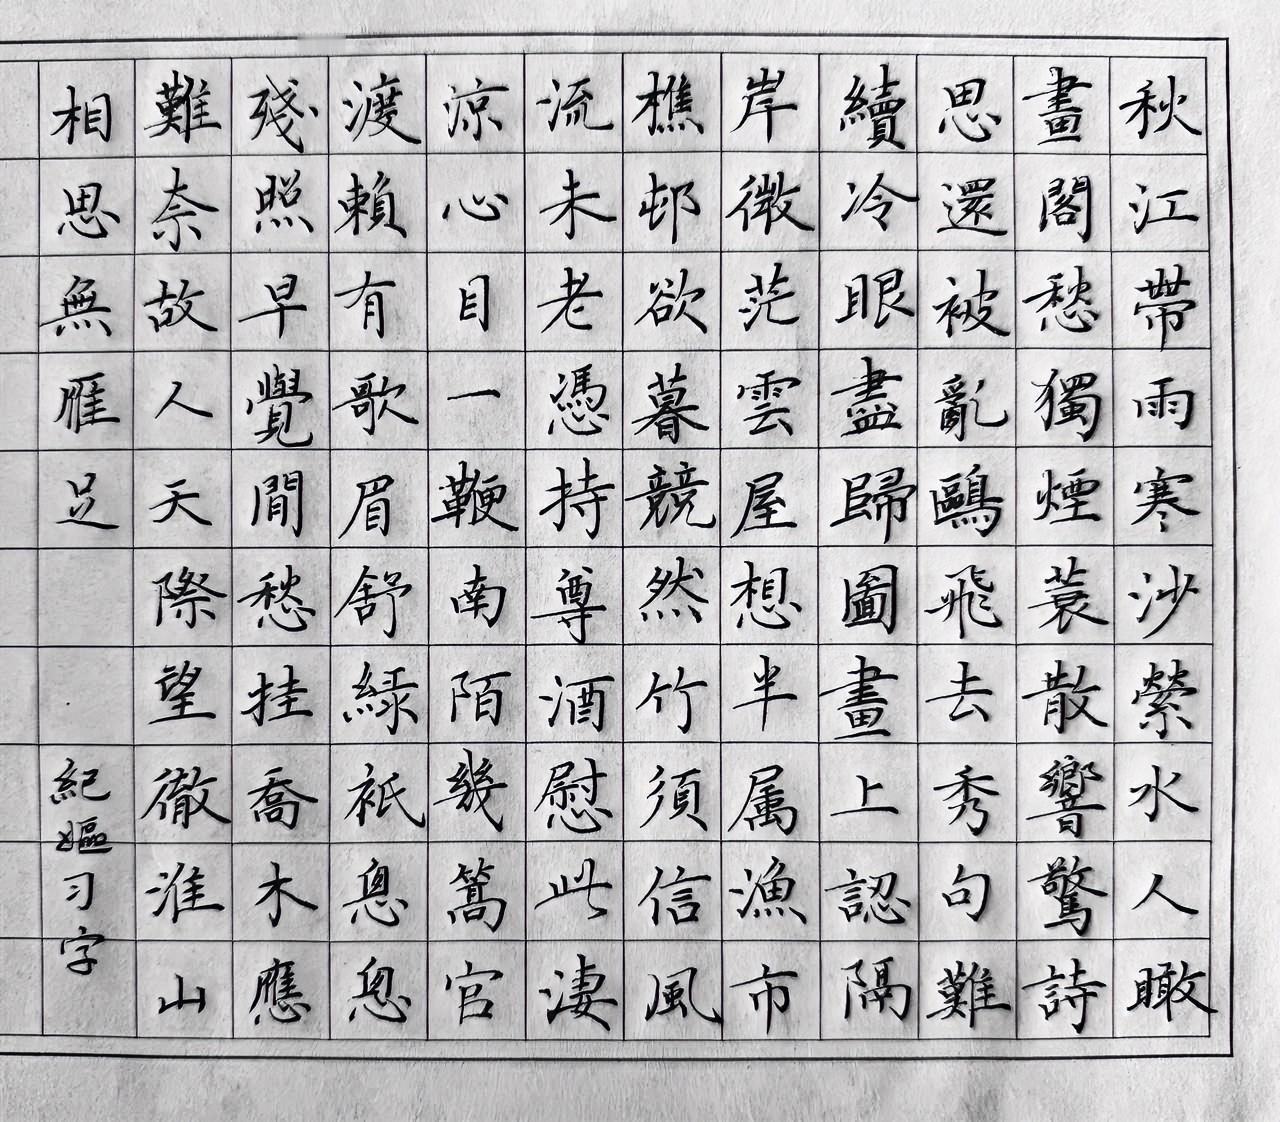 秋江帶雨寒沙縈水人瞰
畫閣愁獨煙蓑散響驚詩
思還被亂鷗飛去秀句難
續冷眼盡歸圖畫上認隔
岸微茫雲屋想半属漁市
樵邨欲暮競然竹須信風
流未老憑持尊酒慰此淒
涼心目一鞭南陌幾篙官
渡賴有歌眉舒綠祇悤悤
殘照早覺間愁挂喬木應
難奈故人天際望徹淮山
相思無雁足
紀嫗习字